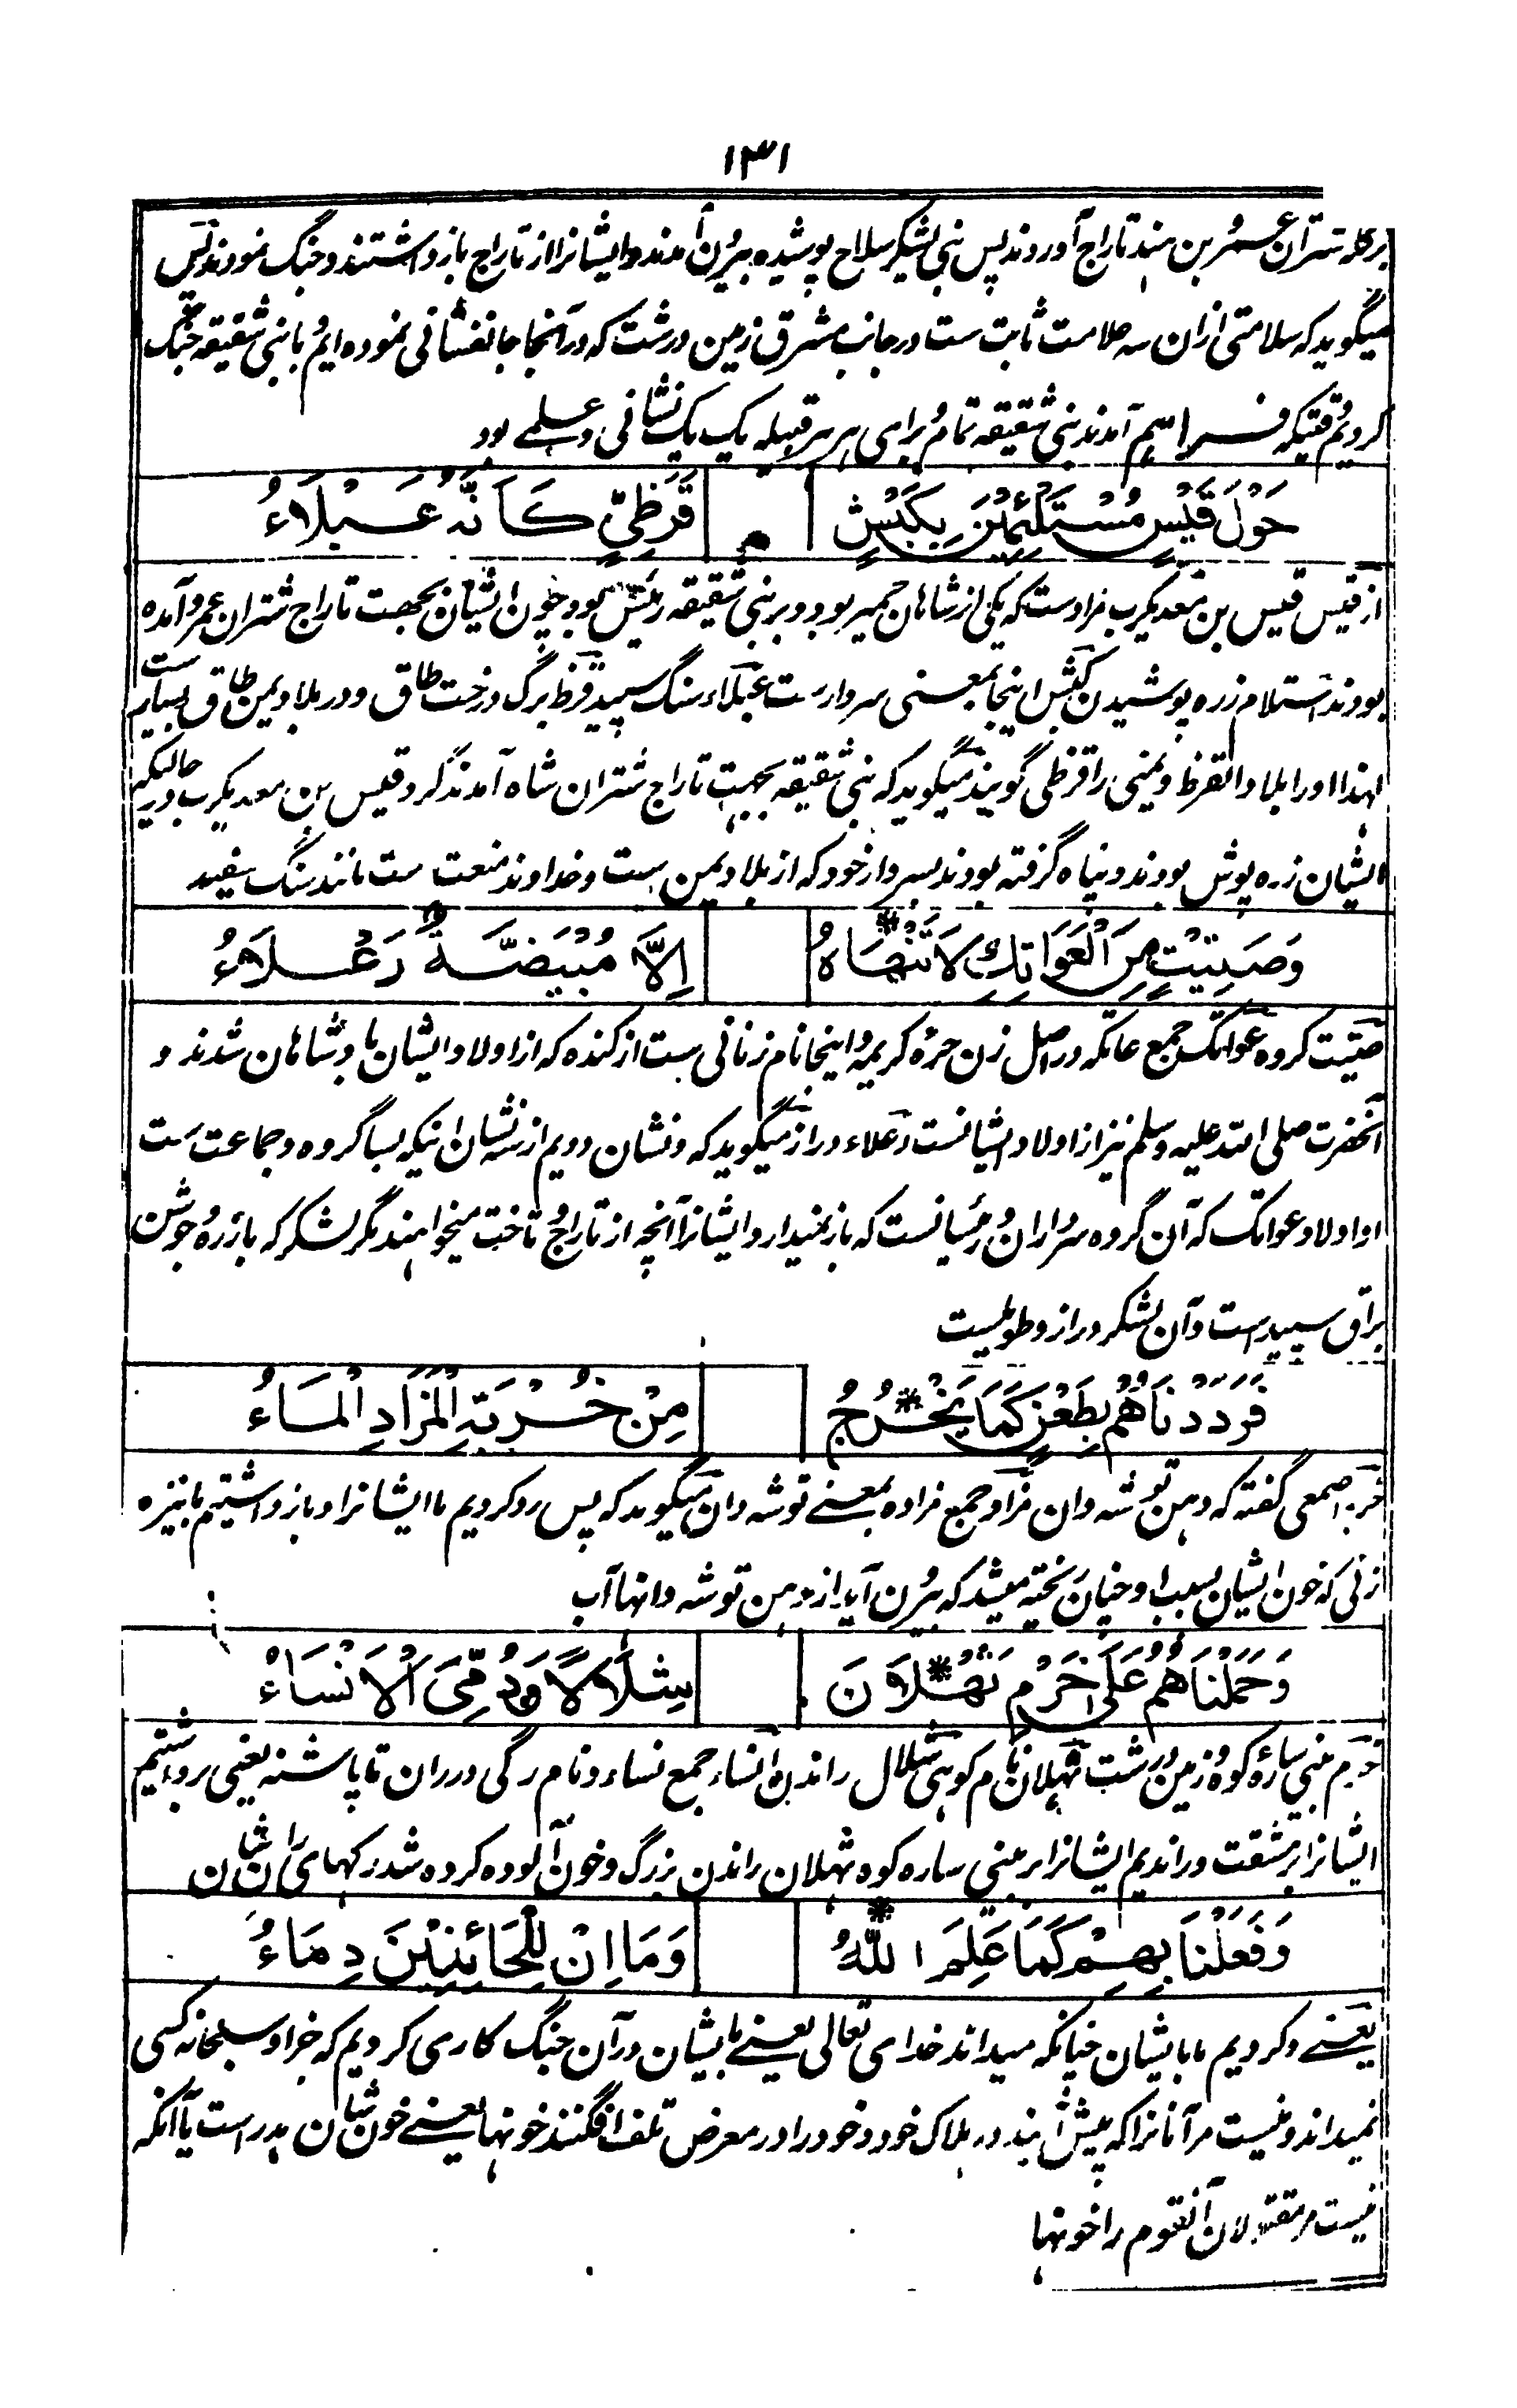 ۱۳۱
بر گله شتران عمرو بن هند تاراج آوردند پس بنی یشکر سلاح پوشیده بیرون آمدند و ایشانرا از تاراج باز داشتند و جنگ نمودند پس
میگوید که سلامتی ازان سه علامت ثابت ست در جانب مشرق زمین درشت که در آنجا جانفشانی نموده ایم و با بنی شقیقه جنگ
کردیم وقتیکه فراہم آمدند بنی شقیقہ تمام و برای ہر ہر قبیلہ یک یک نشانی و علمے بود
حَوْلَ قَيْسٍ مُسْتَلْئِمِيْنَ بِكَبْشٍ قَرَظِيٍّ كَاَنَّهُ عَبْلَاءُ
از قیس قیس بن معدیکرب مرادست که یکی از شاهان حمیر بود و بر بنی شقیقه رئیس بود چون ایشان بجهت تاراج شتران عمرو آمده
بودند استلام زره پوشیدن کبش اینجا بمعنی سردارست عبلاء سنگ سپید قرظ برگ درخت طاق و در بلاد یمن طاق بسیار ست
لهذا او را بلاد القرظ و یمنی را قرظی گویند میگوید که بنی شقیقه بجهت تاراج شتران شاه آمدند گرد قیس بن معد یکرب در حالیکه
ایشان زره پوش بودند و پناه گرفته بودند بسردار خود که از بلاد یمن ست و خداوند منعت ست مانند سنگ سفید
وَصَتِيْتٍ مِنَ الْعَوَاتِكِ لَا تَنْهَاهُ اِلَّا مُبْيَضَّةٌ رَعْلَاءُ
صتیت گروه عواتک جمع عاتکه در اصل زن حره کریمه و اینجا نام زنانی ست از کنده که از اولاد ایشان بادشاهان شدند و
آنحضرت صلی الله علیه وسلم نیز از اولاد ایشانست رعلاء دراز میگوید که و نشان دویم از نشان اینکه بسا گروه و جماعت ست
از اولاد عواتک که آن گروه سرداران و رئیسانست که باز نمیدارد ایشانرا آنچه از تاراج و تاخت میخواهند مگر لشکر که با زره و جوشن
براق سپید است و آن لشکر دراز و طویلست
فَرَدَدْنَاهُمْ بِطَعْنٍ كَمَا يَخْرُجُ مِنْ خُرْبَةِ الْمَزَادِ الْمَاءُ
خربه اصمعی گفته که دہن توشه دان مزاد جمع مزاده بمعنے توشه دان میگوید که پس رد کردیم ما ایشانرا و باز داشتیم با نیزه
زنی که خون ایشان بسبب او چنان ریخته میشد که بیرون آید از دہن توشه دانها آب
وَحَمَلْنَاهُمْ عَلٰى خَزْمِ ثَهْلَانَ شِلَالًا وَدُمِّيَ الْاَنْسَاءُ
خزم بینی ساره کوه و زمین درشت ثهلان نام کوهی شلال راندن انساء جمع نساء و نام رگی در ران تا پاشنه یعنی برداشتیم
ایشانرا بر مشقت و راندیم ایشانرا بر بینی ساره کوه ثهلان راندن بزرگ و خون آلوده کرده شد رگهای ران شان
وَفَعَلْنَا بِهِمْ كَمَا عَلِمَ اللّٰهُ وَمَا اِنْ لِلْحَائِنِيْنَ دِمَاءُ
یعنے و کردیم ما با ایشان چنانکه میداند خدای تعالی یعنے با ایشان در آن جنگ کاری کردیم که جز او سبحانه کسی
نمیداند و نیست مر آنانرا که پیش آیند در ہلاک خود و خود را در معرض تلف افگنند خونہا یعنے خون شان ہدر است یا آنکه
نیست مر مقتولان آنقوم را خونہا